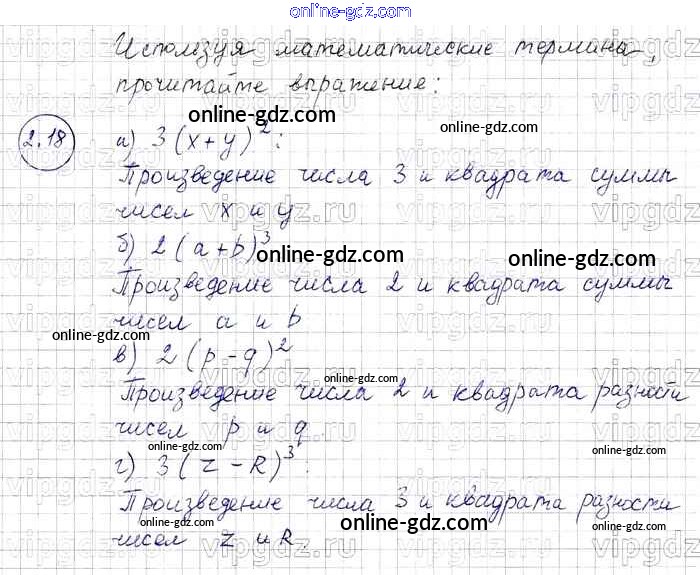 online-gdz.com
Используя математические термина,
прочитайте выражение:
online-gdz.com
2.18 а) 3(x+y)²: online-gdz.com
Произведение числа 3 и квадрата суммы
чисел x и y online-gdz.com
б) 2(a+b)³ online-gdz.com
Произведение числа 2 и квадрата суммы
online-gdz.com чисел a и b online-gdz.com
в) 2(p-q)²
online-gdz.com
Произведение числа 2 и квадрата разности
чисел p и q online-gdz.com online-gdz.com
г) 3(z-R)³: online-gdz.com
Произведение числа 3 и квадрата разности
online-gdz.com online-gdz.com
чисел z и R. online-gdz.com
vipgdz.ru